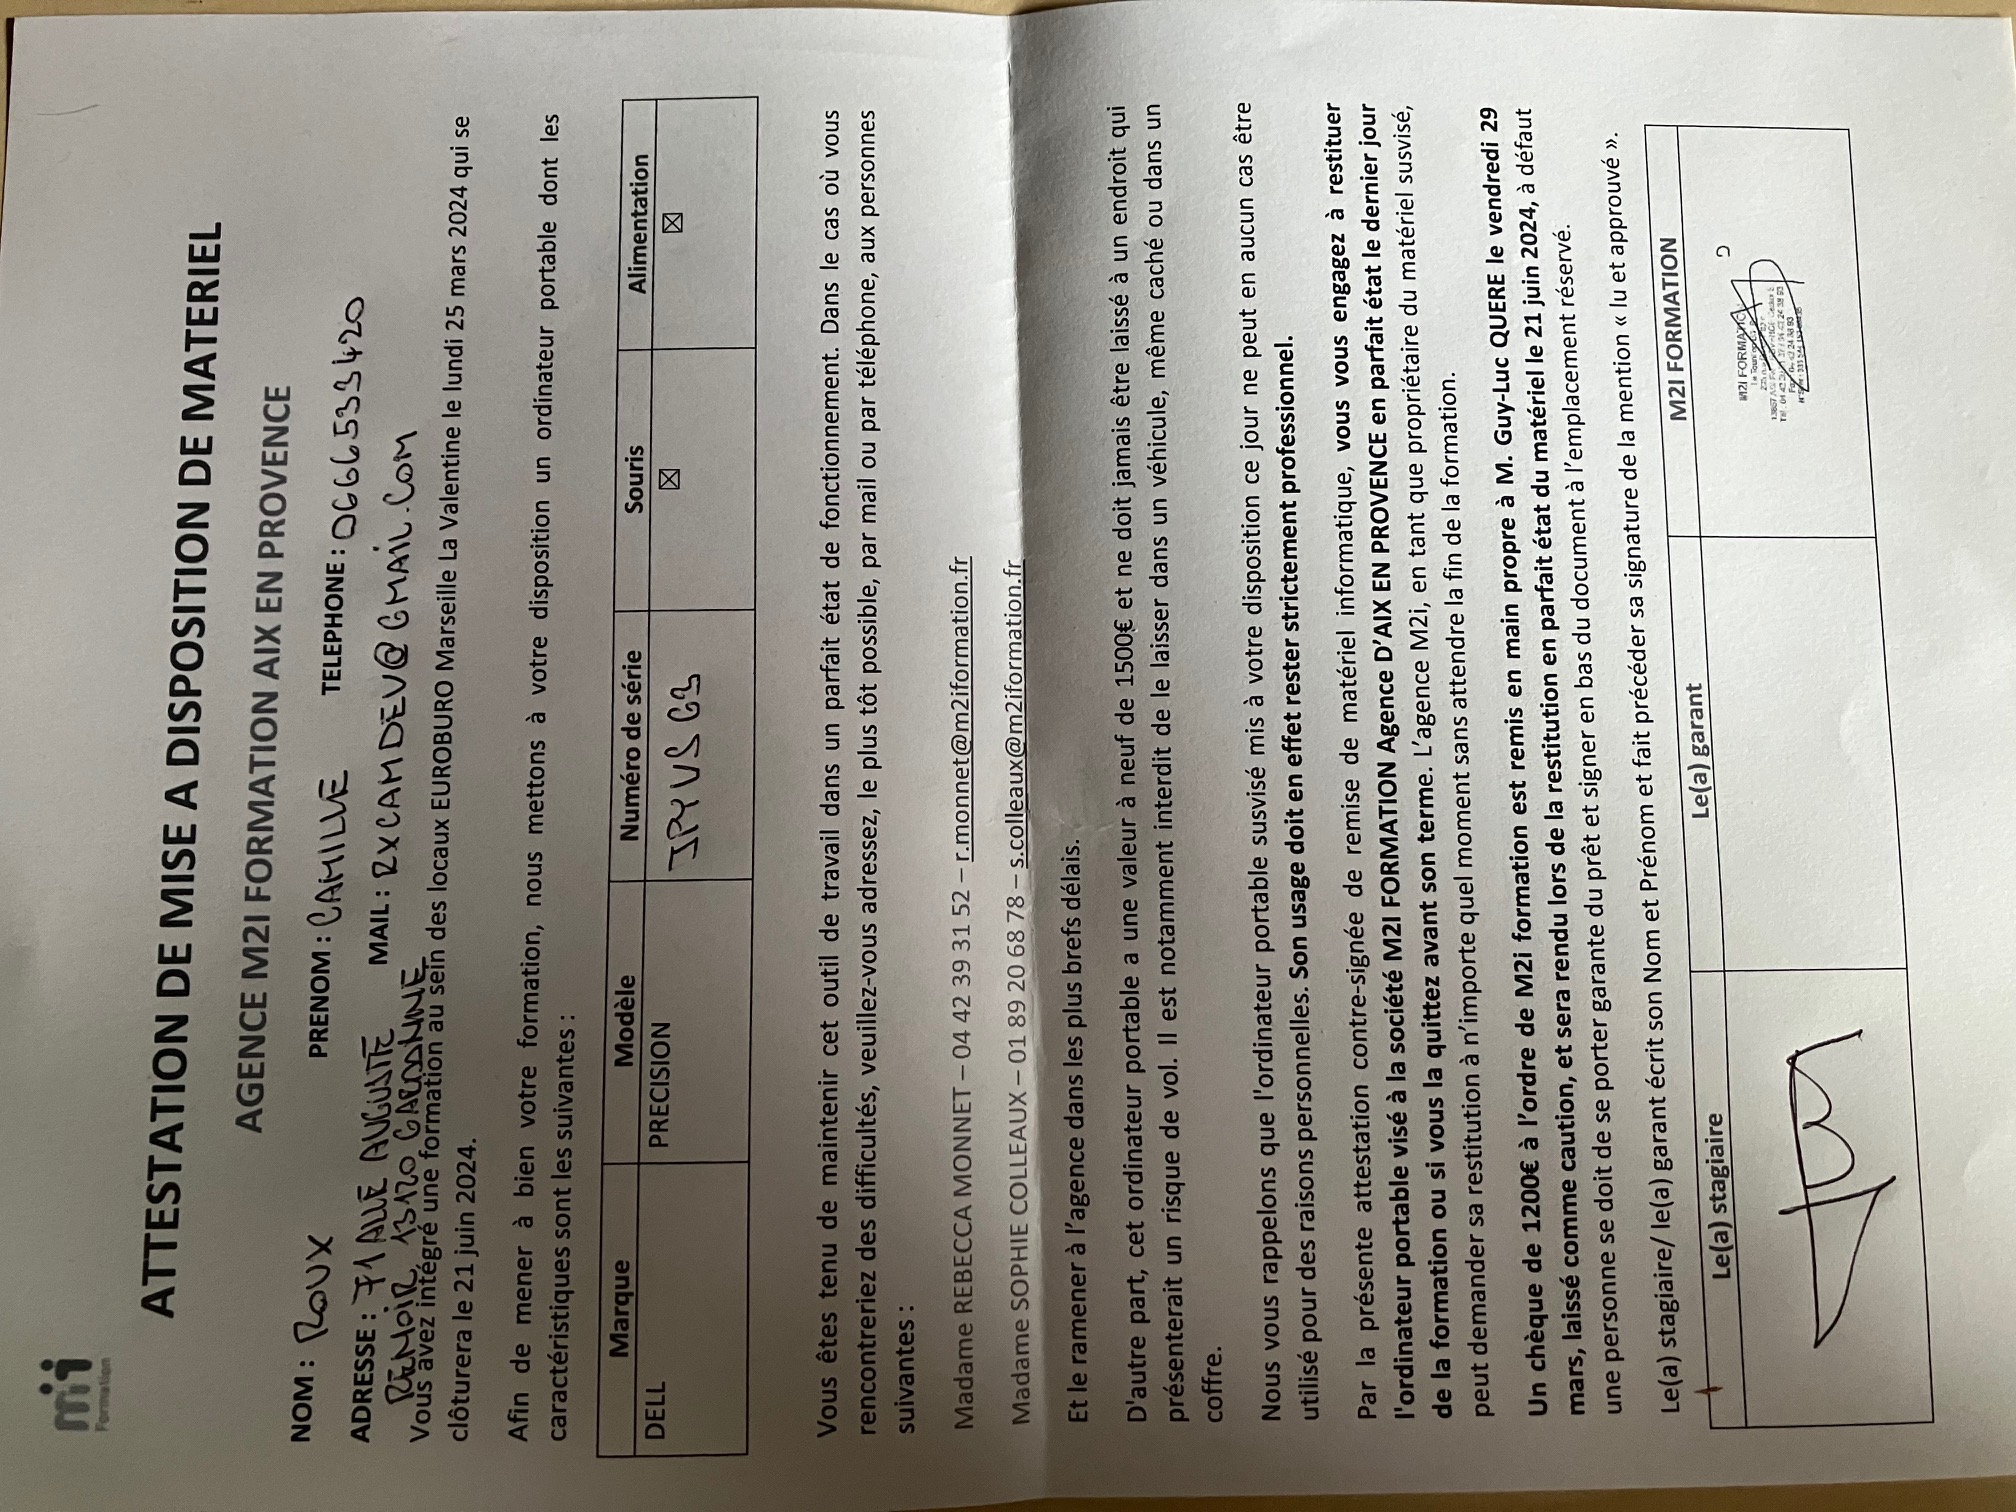 mii
Formation
ATTESTATION DE MISE A DISPOSITION DE MATERIEL
AGENCE M2I FORMATION AIX EN PROVENCE
NOM : ROUX PRENOM : CAMILLE TELEPHONE : 0666533420
ADRESSE : 71 ALLE AUGUSTE MAIL : RXCAMDEV@GMAIL.COM
RENOIR, 13120 GARDANNE
Vous avez intégré une formation au sein des locaux EUROBURO Marseille La Valentine le lundi 25 mars 2024 qui se
clôturera le 21 juin 2024.
Afin de mener à bien votre formation, nous mettons à votre disposition un ordinateur portable dont les
caractéristiques sont les suivantes :
Marque Modèle Numéro de série Souris Alimentation
DELL PRECISION JPYVSG3 ☒ ☒
Vous êtes tenu de maintenir cet outil de travail dans un parfait état de fonctionnement. Dans le cas où vous
rencontreriez des difficultés, veuillez-vous adressez, le plus tôt possible, par mail ou par téléphone, aux personnes
suivantes :
Madame REBECCA MONNET – 04 42 39 31 52 – r.monnet@m2iformation.fr
Madame SOPHIE COLLEAUX – 01 89 20 68 78 – s.colleaux@m2iformation.fr
Et le ramener à l'agence dans les plus brefs délais.
D'autre part, cet ordinateur portable a une valeur à neuf de 1500€ et ne doit jamais être laissé à un endroit qui
présenterait un risque de vol. Il est notamment interdit de le laisser dans un véhicule, même caché ou dans un
coffre.
Nous vous rappelons que l'ordinateur portable susvisé mis à votre disposition ce jour ne peut en aucun cas être
utilisé pour des raisons personnelles. Son usage doit en effet rester strictement professionnel.
Par la présente attestation contre-signée de remise de matériel informatique, vous vous engagez à restituer
l'ordinateur portable visé à la société M2I FORMATION Agence D'AIX EN PROVENCE en parfait état le dernier jour
de la formation ou si vous la quittez avant son terme. L'agence M2i, en tant que propriétaire du matériel susvisé,
peut demander sa restitution à n'importe quel moment sans attendre la fin de la formation.
Un chèque de 1200€ à l'ordre de M2i formation est remis en main propre à M. Guy-Luc QUERE le vendredi 29
mars, laissé comme caution, et sera rendu lors de la restitution en parfait état du matériel le 21 juin 2024, à défaut
une personne se doit de se porter garante du prêt et signer en bas du document à l'emplacement réservé.
Le(a) stagiaire/ le(a) garant écrit son Nom et Prénom et fait précéder sa signature de la mention « lu et approuvé ».
Le(a) stagiaire Le(a) garant M2I FORMATION
M2I FORMATIO